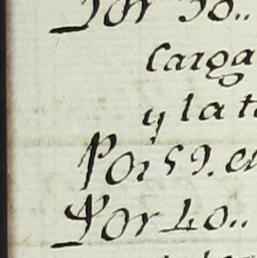 Por 30..
Carga
y la ta
Por 59. en
Por 40..